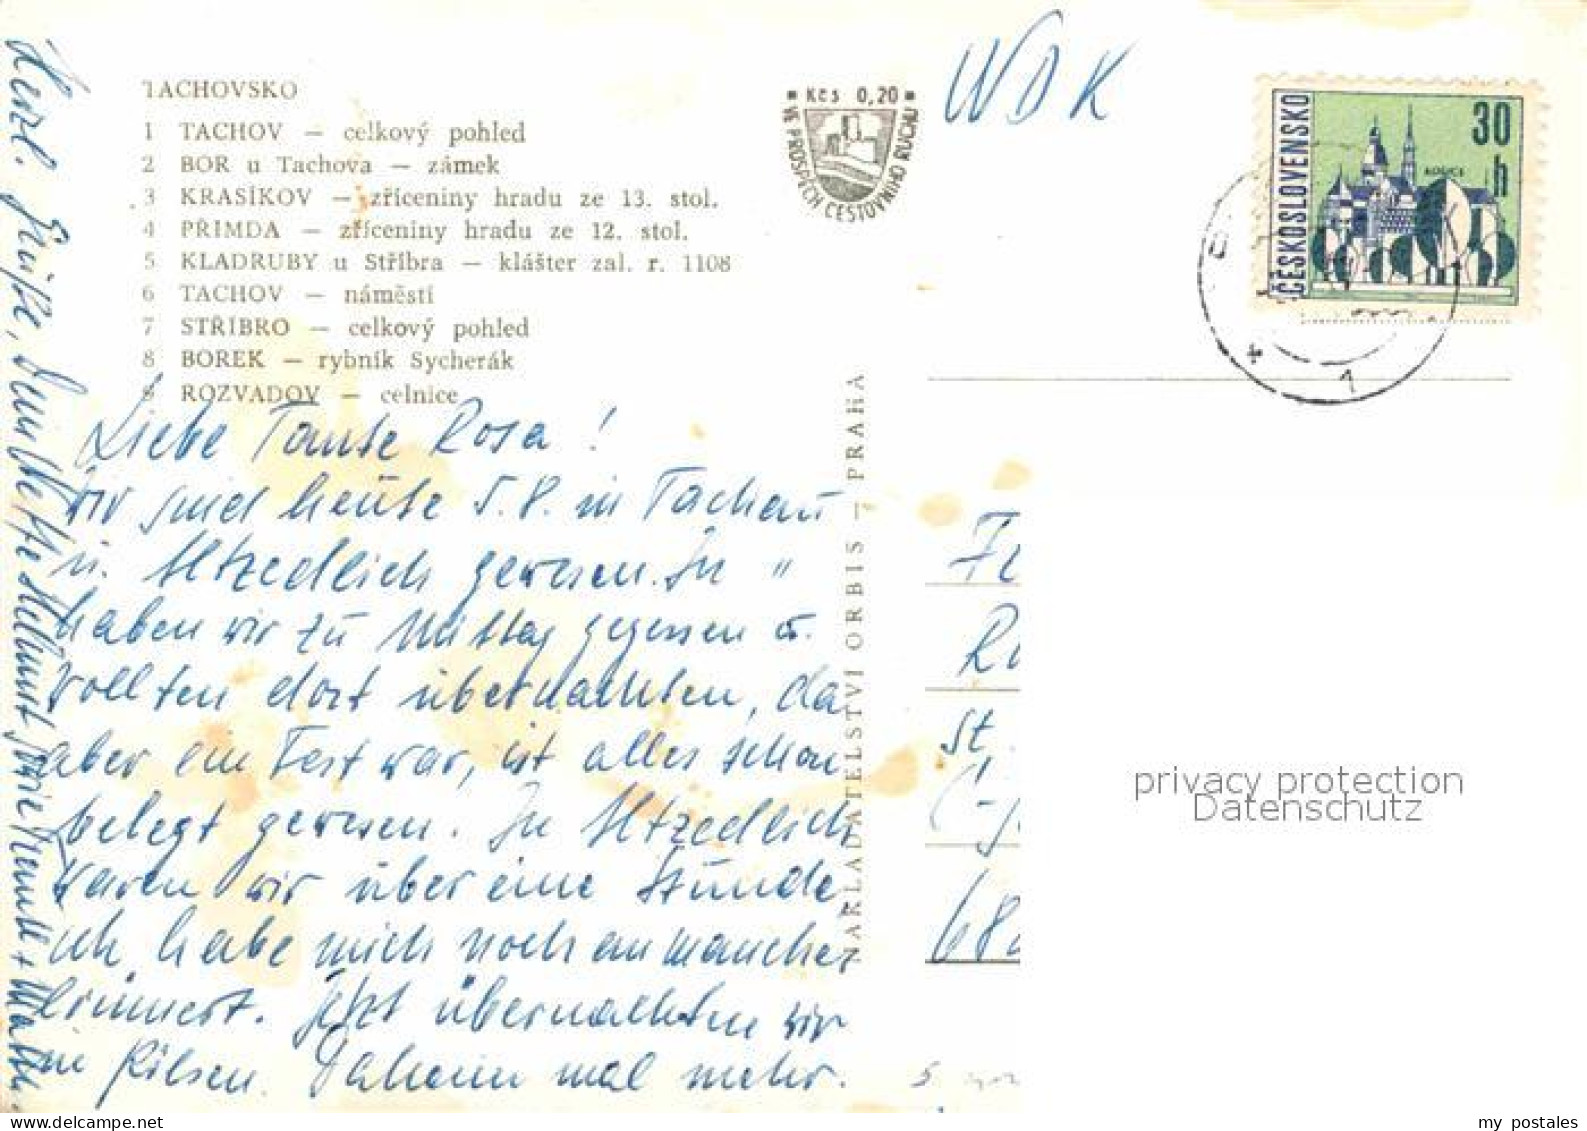 TACHOVSKO
1 TACHOV — celkový pohled
2 BOR u Tachova — zámek
3 KRASÍKOV — zříceniny hradu ze 13. stol.
4 PŘIMDA — zříceniny hradu ze 12. stol.
5 KLADRUBY u Stříbra — klášter zal. r. 1108
6 TACHOV — náměstí
7 STŘÍBRO — celkový pohled
8 BOREK — rybník Sycherák
9 ROZVADOV — celnice
Kčs 0,20
VE PROSPĚCH CESTOVNÍHO RUCHU
NDK
ČESKOSLOVENSKO
30 h
KOŠICE
1
Liebe Tante Rosa!
Wir sind heute 5.8. in Tachau
u. Altzedlich gewesen. In "
haben wir zu Mittag gegessen u.
wollten dort übernachten, da
aber ein Fest war, ist alles schon
belegt gewesen. In Altzedlich
waren wir über eine Stunde
ich habe mich noch an manches
erinnert. Jetzt übernachten wir
in Pilsen. Daheim mal mehr.
Herzl. Grüße, Dein Neffe Hellmut sowie
NAKLADATELSTVÍ ORBIS — PRAHA
St
68
privacy protection
Datenschutz
my postales